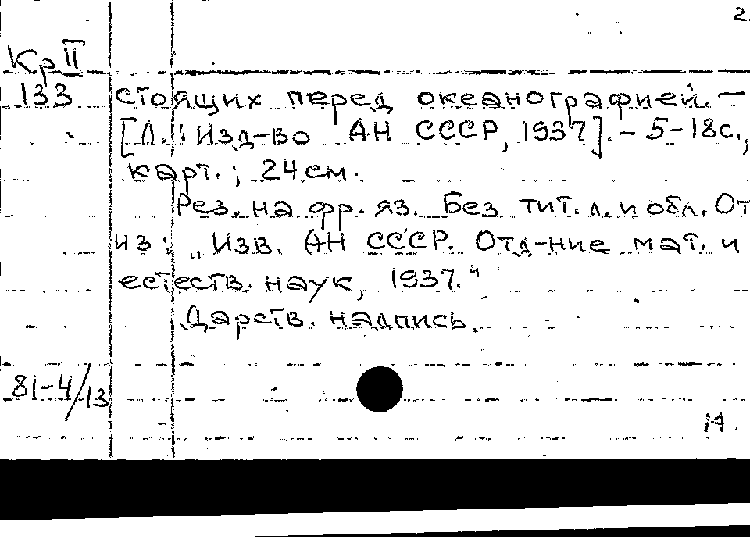 2
Кр II
133 стоящих перед океанографией. —
[Л.: Изд-во АН СССР, 1937]. - 5-18с.,
карт.; 24 см.
Рез. на фр. яз. Без тит. л. и обл. От
из: „Изв. АН СССР. Отд-ние мат. и
естеств. наук, 1937."
Дарств. надпись.
81-4/13
14